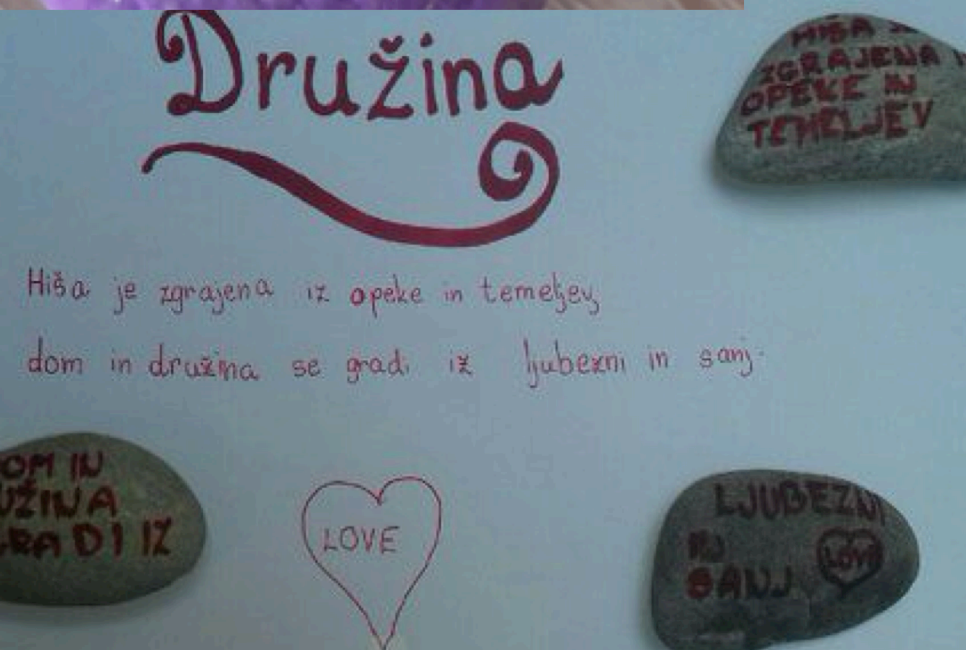 Družina
HIŠA
ZGRAJENA
OPEKE IN
TEMELJEV
Hiša je zgrajena iz opeke in temeljev,
dom in družina se gradi iz ljubezni in sanj.
OM IN
UŽINA
GRADI IZ
LOVE
LJUBEZNI
IN
SANJ
LOVE